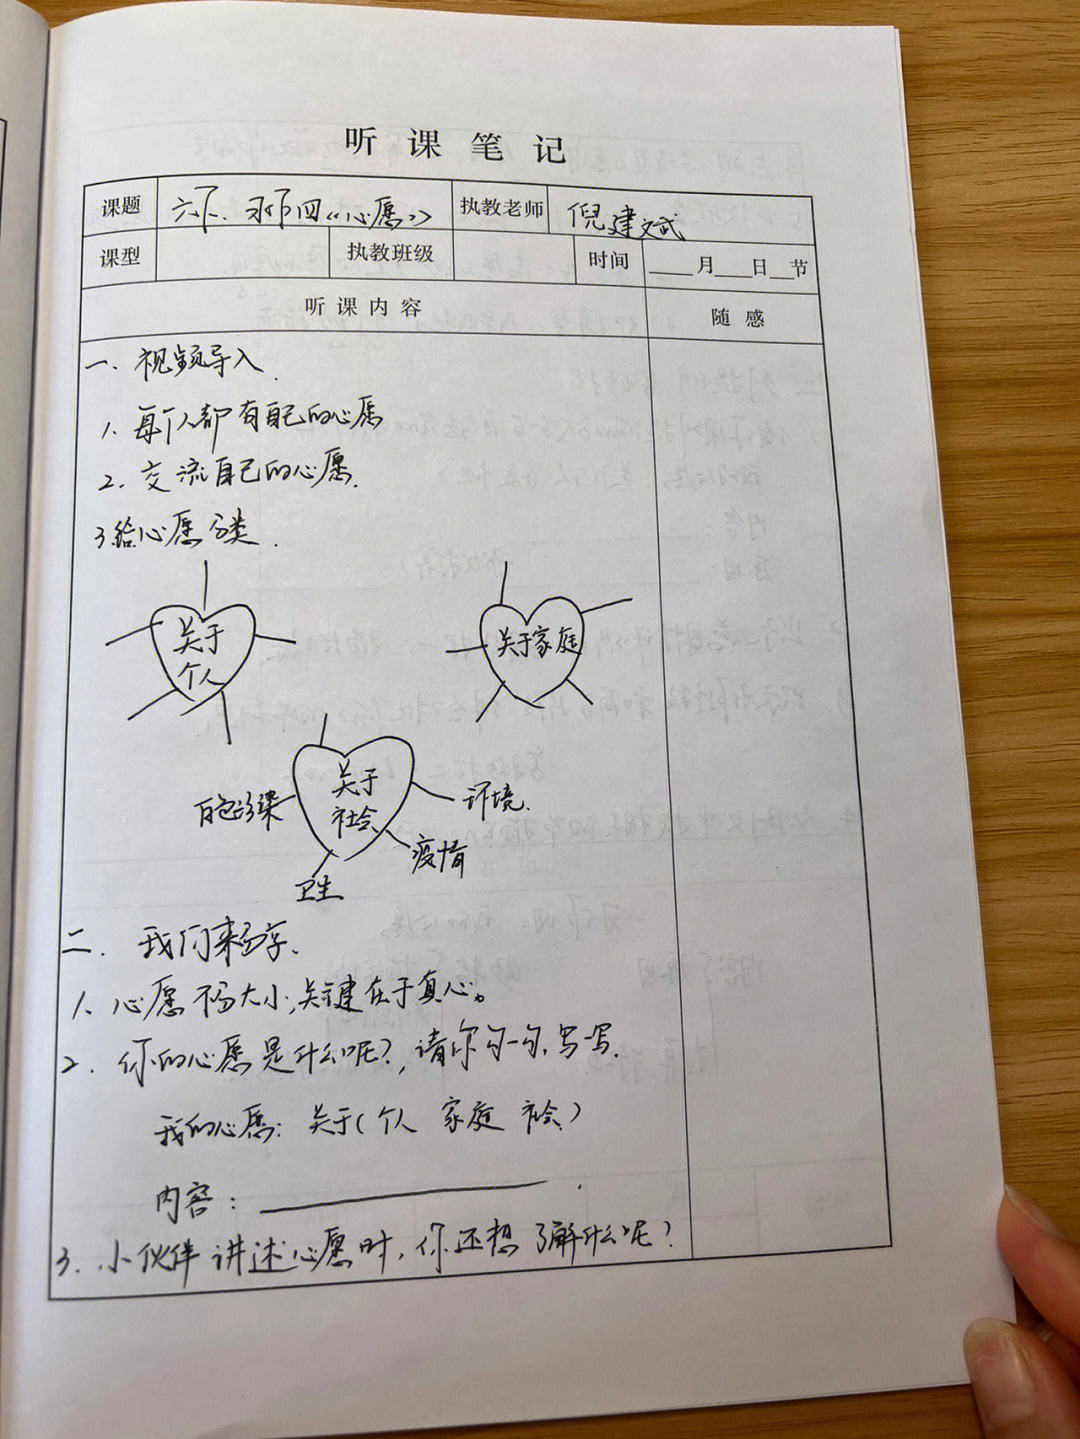 听课笔记
课题 六下.习作四《心愿》 执教老师 倪建斌
课型 执教班级 时间 ___月___日__节
听课内容 随感
一、视频导入.
1. 每个人都有自己的心愿
2. 交流自己的心愿.
3.给心愿分类.
关于
个人
关于家庭
关于
社会
白色污染
环境.
疫情
卫生
二. 我们来分享.
1. 心愿不分大小,关键在于真心。
2. 你的心愿是什么呢?,请你勾一勾,写一写.
我的心愿: 关于(个人 家庭 社会)
内容: ________.
3. 小伙伴讲述心愿时,你还想了解什么呢?